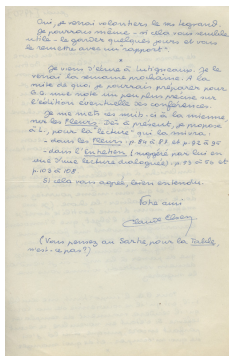 Oui, je verrai volontiers le ms Legrand.
Je pourrais même - si cela vous semble
utile - le garder quelques jours et vous
le remettre avec un "rapport".
*
Je viens d'écrire à Lutigneaux. Je le
verrai la semaine prochaine. A la
suite de quoi je pourrais préparer pour
G.G. une note un peu plus précise sur
l'édition éventuelle des conférences.
*
Je me mets ce midi-ci à la mienne,
sur les Fleurs. Dès à présent, je propose
à L., pour la "lecture" qui la suivra :
- dans les Fleurs : p. 84 à 87 et p. 92 à 95
- dans l'Entretien (suggéré par lui en
vue d'une lecture dialoguée) : p. 43 à 50 et
p. 103 à 108
Si cela vous agrée, bien entendu.
Votre ami
(Vous pensez au Sartre, pour la Table,
n'est-ce pas ?)